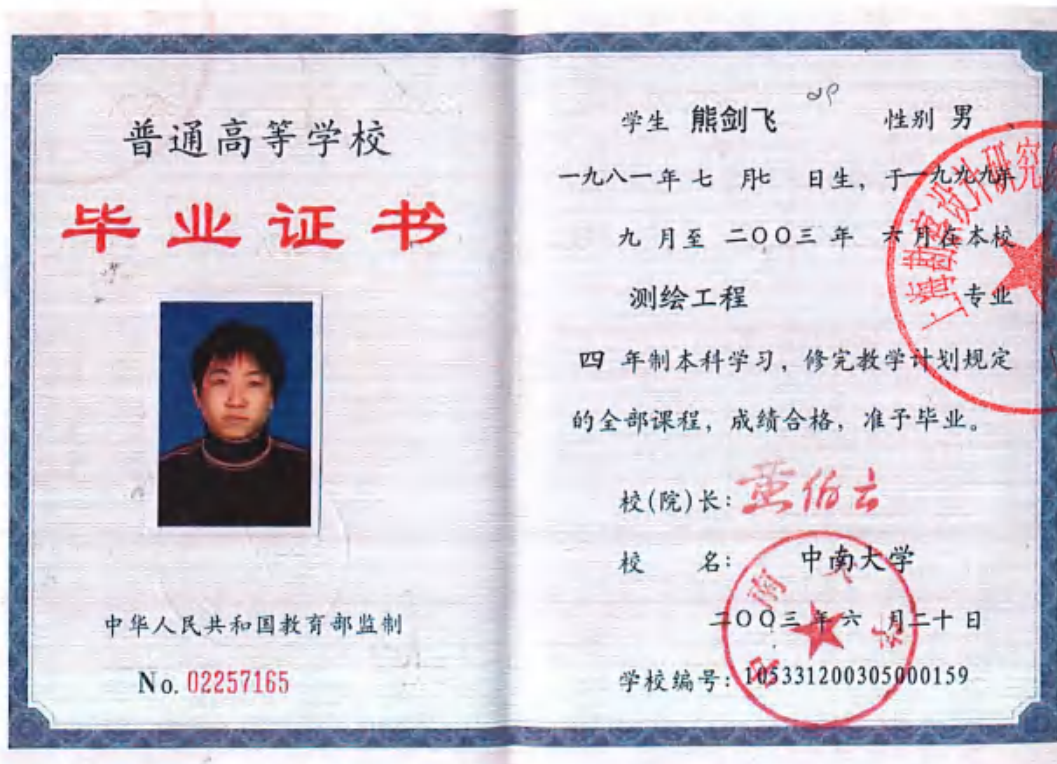 普通高等学校
毕业证书
中华人民共和国教育部监制
No. 02257165
学生 熊剑飞 性别 男
一九八一年 七 月七 日生，于一九九九年
九 月至 二〇〇三 年 六月在本校
测绘工程 专业
四 年制本科学习，修完教学计划规定
的全部课程，成绩合格，准予毕业。
校(院)长：黄伯云
校 名： 中南大学
二〇〇三 年 六 月二十 日
学校编号：105331200305000159
上海勘察设计研究
中南大学